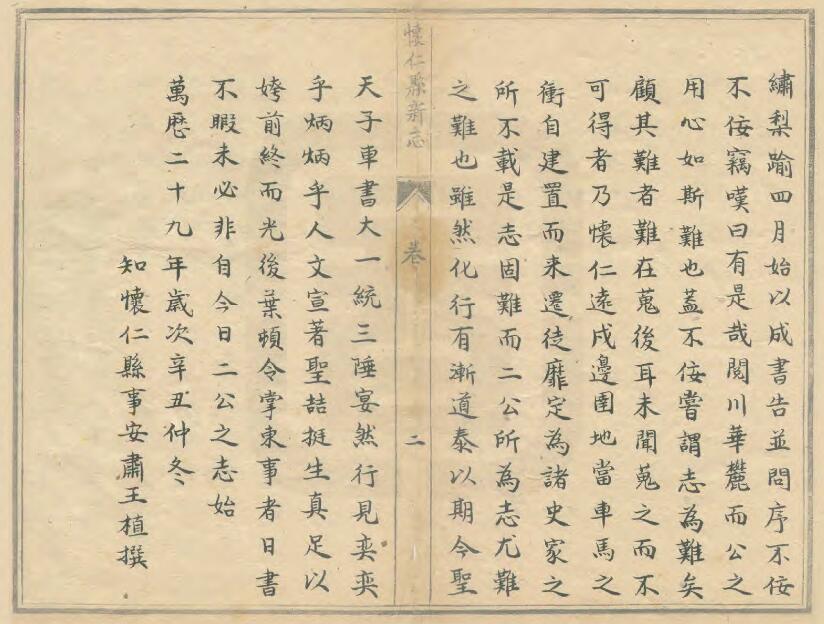 繡梨踰四月始以成書告並問序不佞
不佞竊嘆曰有是哉閱川華麓而公之
用心如斯難也蓋不佞嘗謂志為難矣
顧其難者難在蒐後耳未聞蒐之而不
可得者乃懷仁遠戍邊圉地當車馬之
衝自建置而来遷徒靡定為諸史家之
所不載是志固難而二公所為志尤難
之難也雖然化行有漸道泰以期今聖
懷仁縣新志
卷
二
天子車書大一統三陲宴然行見奕奕
乎炳炳乎人文宣著聖喆挺生真足以
姱前終而光後葉頓令掌東事者日書
不暇未必非自今日二公之志始
萬歷二十九年歲次辛丑仲冬
知懷仁縣事安肅王植撰